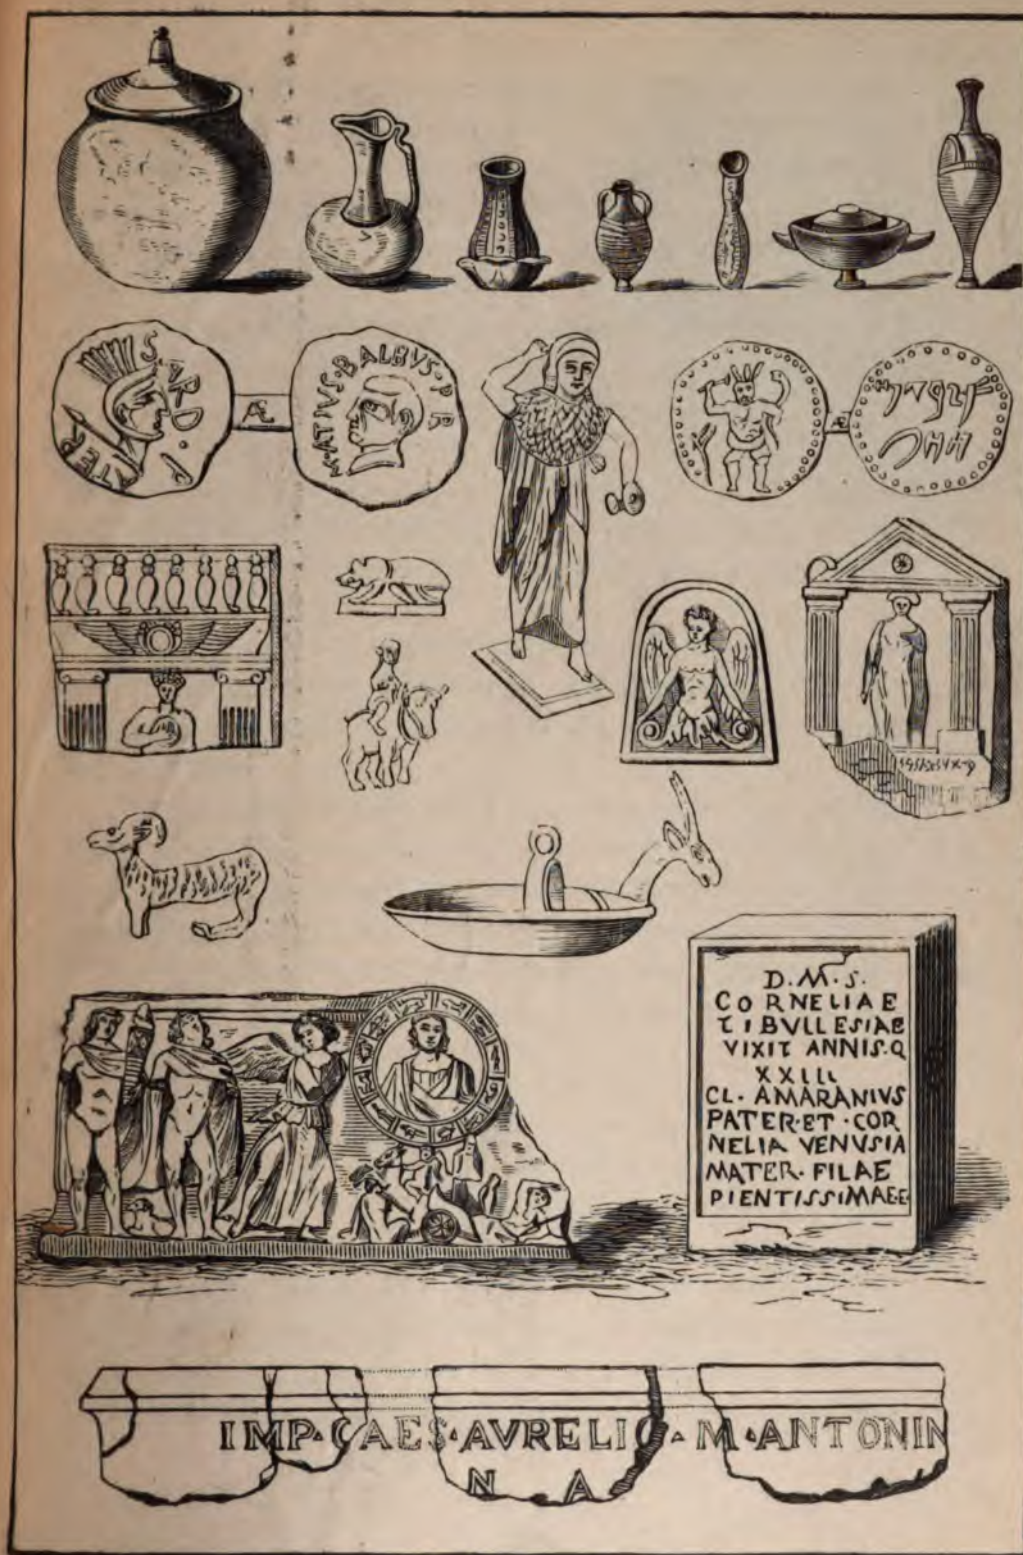 SARD·PATER
Æ
M·ATIVS·BALBVS·P R
Æ
D·M·S·
CORNELIAE
TIBVLLESIAE
VIXIT ANNIS·Q
XXIII
CL· AMARANIVS
PATER·ET·COR
NELIA VENVSIA
MATER· FILAE
PIENTISSIMAEE
IMP·CAES·AVRELIO·M·ANTONIN
N A